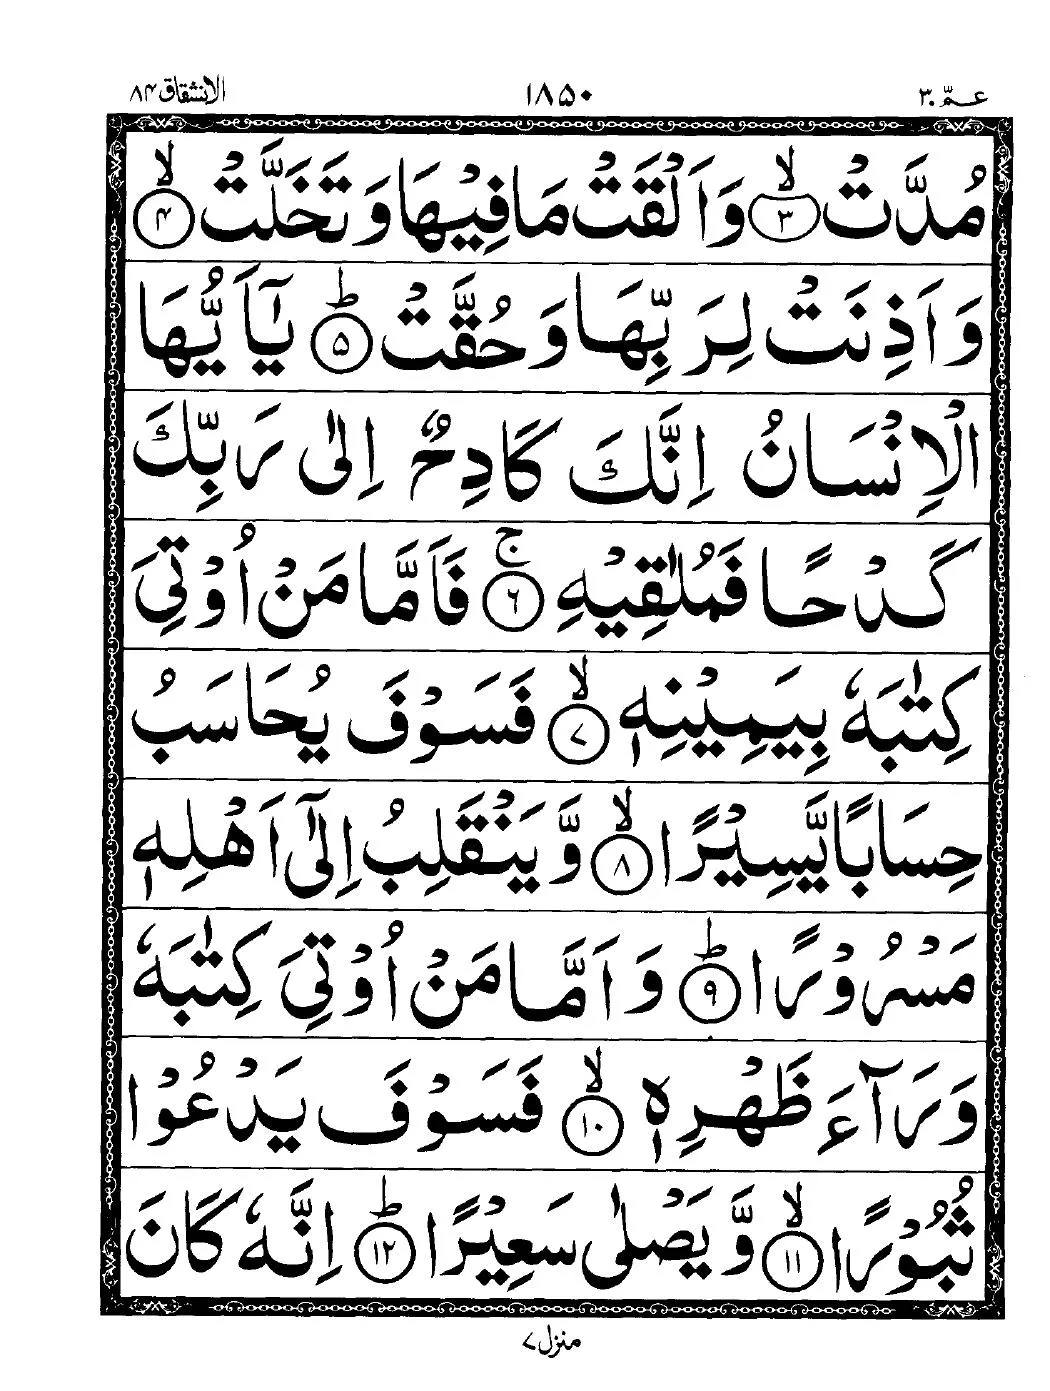 عـمّ ٣٠ ١٨٥٠ الانشقاق ٨٤
مُدَّتْ ۙ﴿۳﴾ وَاَلْقَتْ مَا فِيْهَا وَ تَخَلَّتْ ۙ﴿۴﴾
وَ اَذِنَتْ لِرَبِّهَا وَ حُقَّتْ ؕ﴿۵﴾ يٰۤاَيُّهَا
الْاِنْسَانُ اِنَّكَ كَادِحٌ اِلٰى رَبِّكَ
كَدْحًا فَمُلٰقِيْهِ ۚ﴿۶﴾ فَاَمَّا مَنْ اُوْتِىَ
كِتٰبَهٗ بِيَمِيْنِهٖ ۙ﴿۷﴾ فَسَوْفَ يُحَاسَبُ
حِسَابًا يَّسِيْرًا ۙ﴿۸﴾ وَّ يَنْقَلِبُ اِلٰٓى اَهْلِهٖ
مَسْرُوْرًا ؕ﴿۹﴾ وَ اَمَّا مَنْ اُوْتِىَ كِتٰبَهٗ
وَرَآءَ ظَهْرِهٖ ۙ﴿۱۰﴾ فَسَوْفَ يَدْعُوْا
ثُبُوْرًا ۙ﴿۱۱﴾ وَّ يَصْلٰى سَعِيْرًا ؕ﴿۱۲﴾ اِنَّهٗ كَانَ
منزل ٧